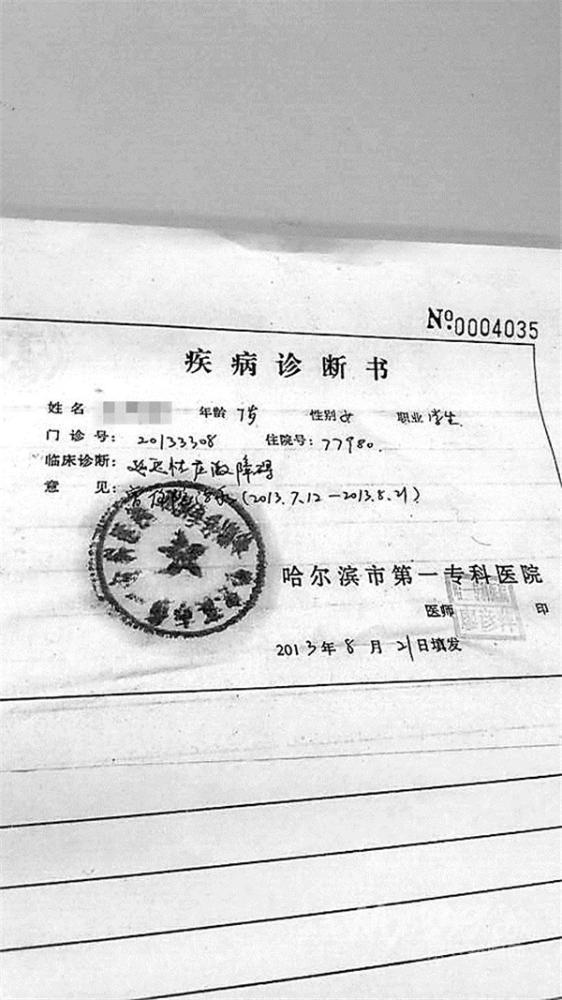 №0004035
疾病诊断书
姓名 年龄 7岁 性别 女 职业 学生
门诊号: 20133308 住院号: 77980.
临床诊断: 延迟性应激障碍
意见: 曾住院治疗 (2013.7.12-2013.8.21)
哈尔滨市第一专科医院
医师 印
2013年8月21日填发